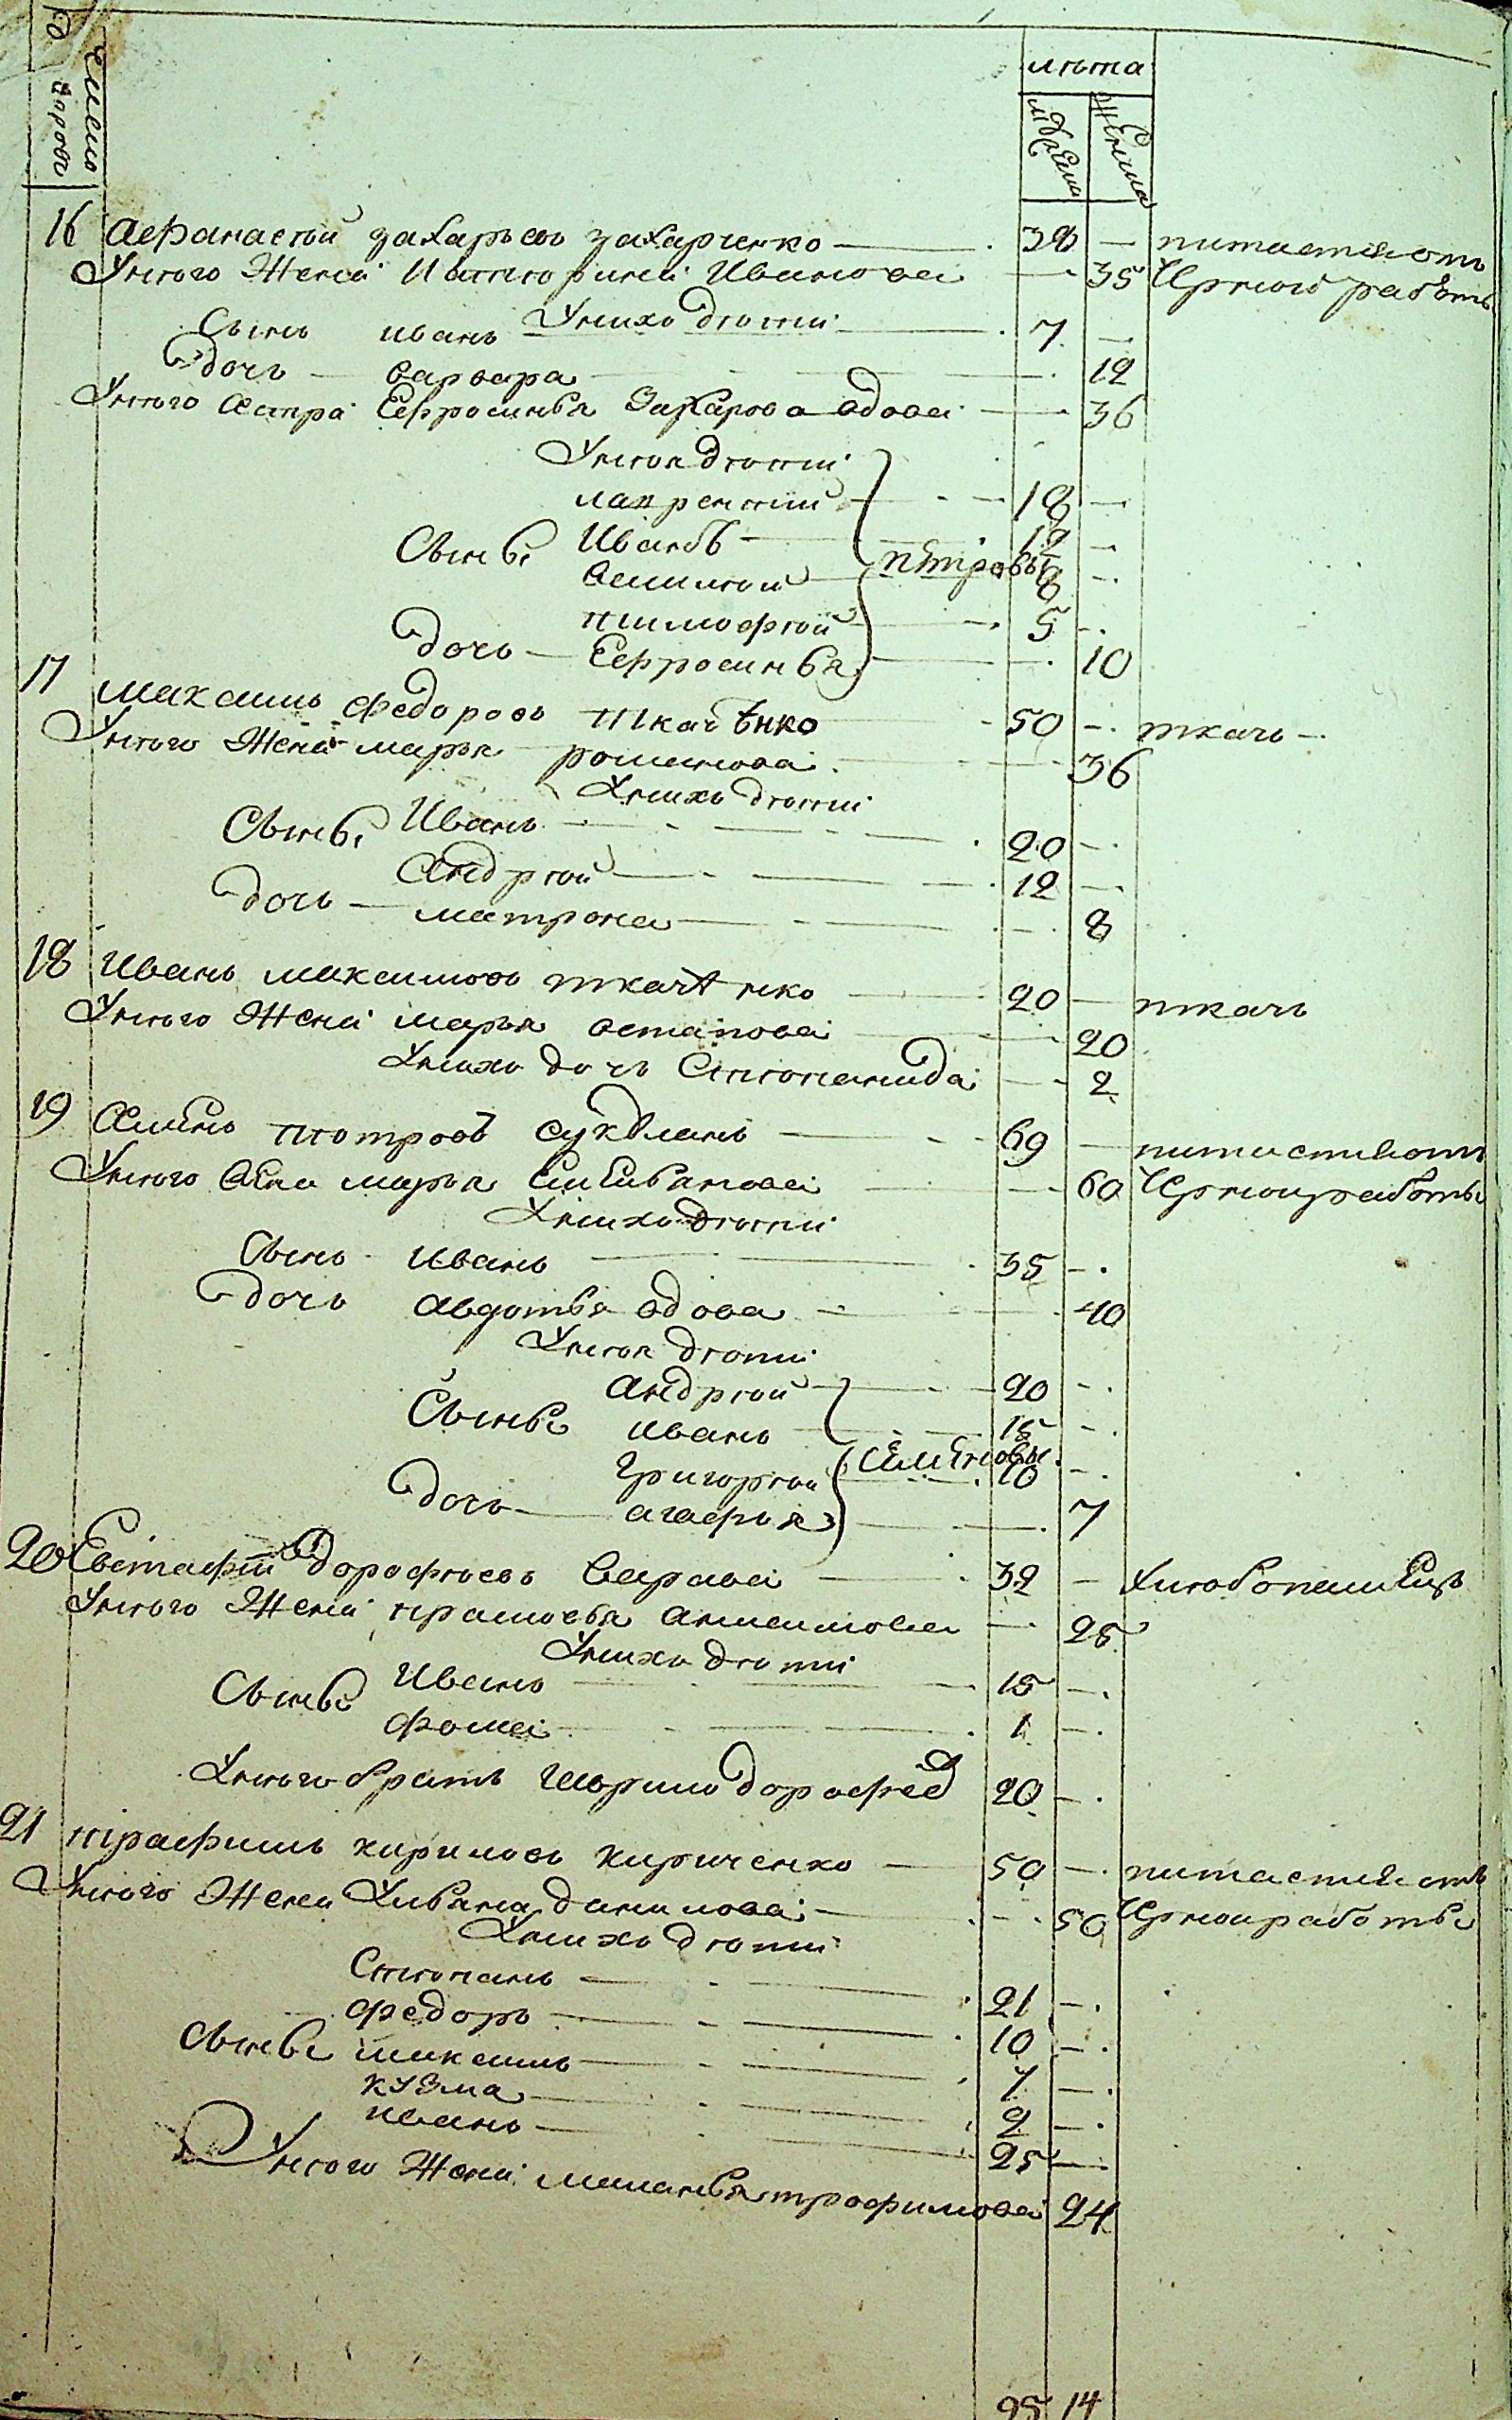 число дворовъ
лѣта
мужеска
женска
16 Афанасей Захарьевъ Захарченко — 38 — питается отъ
Унего Жена Катерина Иванова — 35 Черной работы
Унихъ дѣти
Сынъ иванъ — 7 —
дочь — варвара — 12
Унего Сестра Ефросинья Захарова вдова — 36
Унея дѣти
лаврентий — 18 —
Сынвы Иванъ — 12 —
петровы
Василей — 8 —
тимофѣй — 5 —
дочь — Ефросинья — 10
17 максимъ Федоровъ Ткаченко — 50 — ткачь —
Унего Жена марья романова — 36
Унихъ дѣти
Сынвы Иванъ — 20 —
Андрѣй — 12 —
дочь — матрона — 8
18 Иванъ максимовъ ткаченко — 20 — ткачь
Унего Жена марья остапова — 20
Унихъ дочь Степанида — 2
19 Семенъ петровъ — 69 — питается отъ
Унего жена марья Селиванова — 60 Черной работы
Унихъ дѣти
Сынъ Иванъ — 35 —
дочь авдотья вдова — 40
Унея дѣти
андрѣй — 20 —
Сынвы иванъ — 15 —
Семеновы
Григорей — 10 —
дочь — агафья — 7
20 Евстафий дорофѣевъ Варава — 32 — Хлебопашецъ
Унего Жена прасковья — 25
Унихъ дѣти
Сынвы Иванъ — 15 —
фома — 1 —
Унего братъ дорофѣе 20 —
21 трафимъ кириловъ Кириченко — 50 — питается отъ
Унего Жена Ульяна данилова — 50 Черной работы
Унихъ дѣти
Степанъ — 21 —
федоръ — 10 —
Сынвы максимъ — 7 —
кузма — 2 —
иванъ — 25 —
Унего Жена меланья трофимова 24
25 14